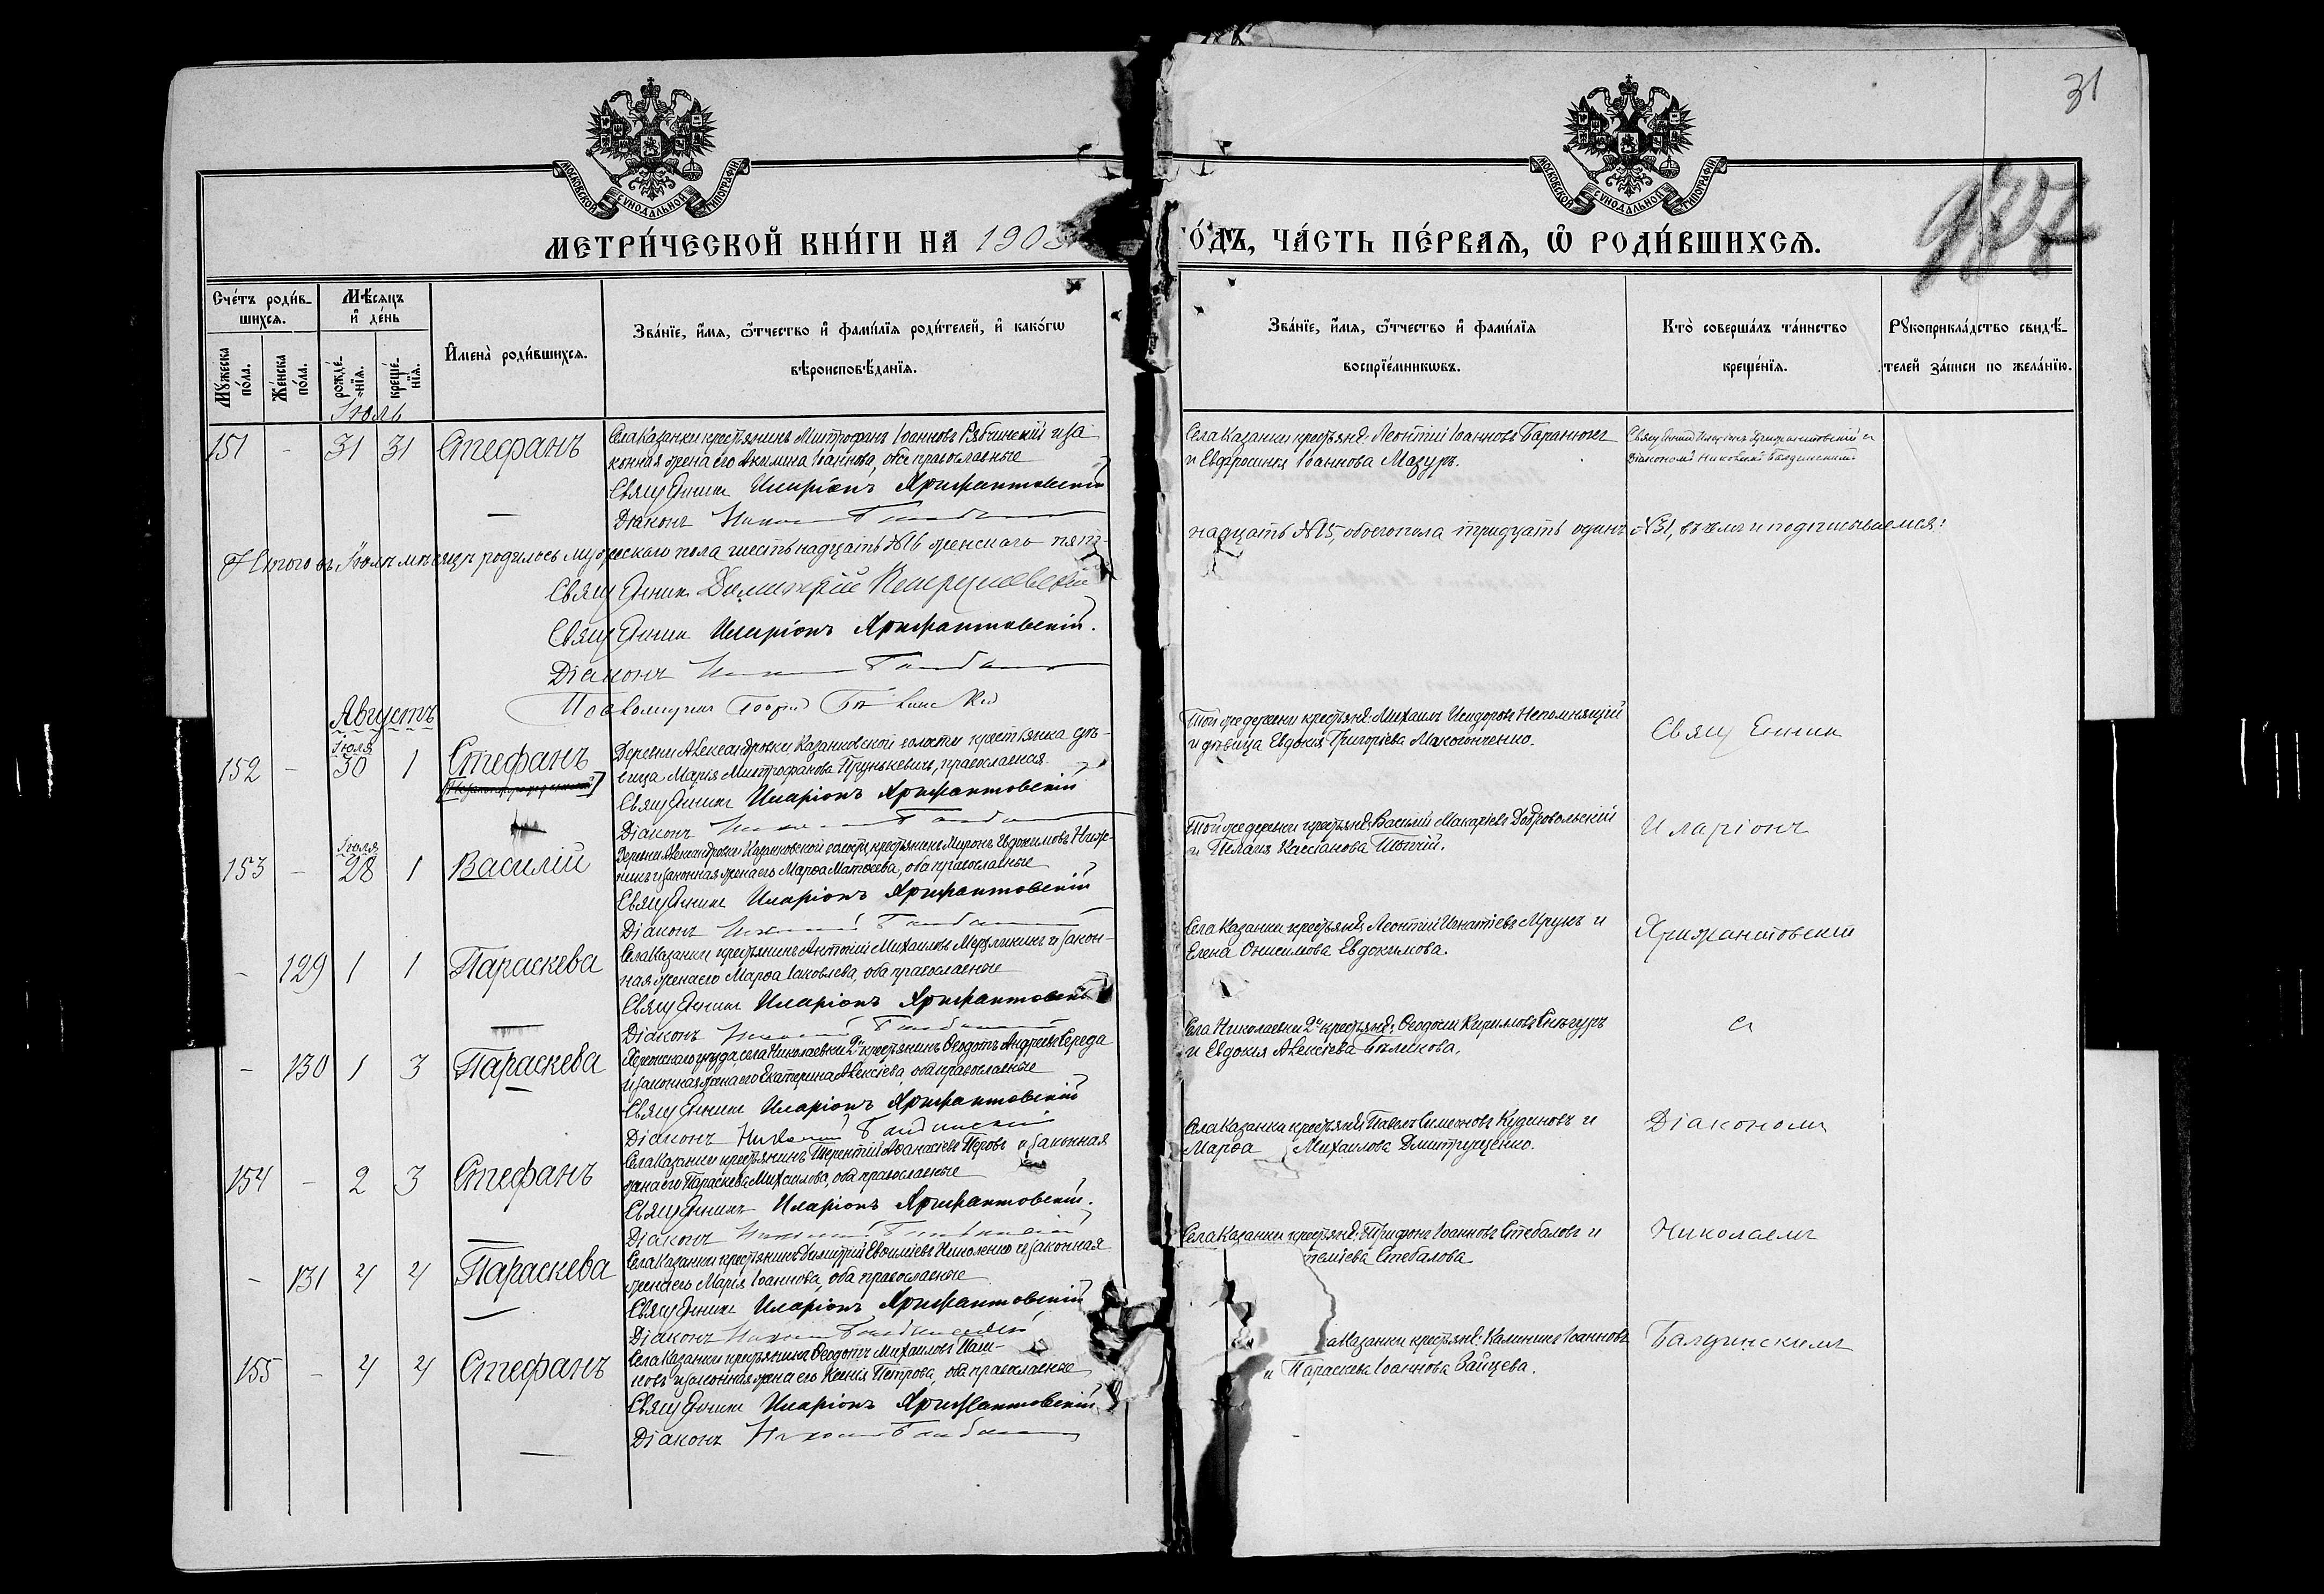 31
МОСКОВСКОЙ СѴНОДАЛЬНОЙ ТИПОГРАФІИ
МОСКОВСКОЙ СѴНОДАЛЬНОЙ ТИПОГРАФІИ
МЕТРИ́ЧЕСКОЙ КНИ́ГИ НА 190
О́ДЪ, ЧА́СТЬ ПЕ́РВАЯ, Ѡ РОДИ́ВШИХСЯ.
Сче́тъ роди́в-
шихся.
Мѣ́сяцъ
и҆ де́нь
Мꙋ́жеска
по́ла.
Же́нска
по́ла.
рожде́-
нїя.
креще́-
нїя.
И҆мена̀ роди́вшихся.
Зва́нїе, и҆́мя, ѻ҆́тчество и҆ фами́лїя роди́телей, и҆ како́гѡ
вѣроисповѣ́данїя.
Зва́нїе, и҆́мя, ѻ҆́тчество и҆ фами́лїя
воспрїе́мникѡвъ.
Кто̀ соверша́лъ та́инство
креще́нїя.
Рꙋкоприкла́дство свидѣ́-
телей за́писи по жела́нїю.
Іюль
151 - 31 31 Стефанъ
Села Казанки крестьянинъ Митрофанъ Іоанновъ Рябчинскій и за
конная жена его Акилина Іоаннова, оба православные
Священникъ Иларіонъ Хрисантовскій
Діаконъ
Села Казанки крестьян: Леонтій Іоанновъ Баранюкъ
и Евфросинія Іоаннова Мазуръ.
Священникъ Иларіонъ Хрисантовскій и
діакономъ Николаемъ Балдинскимъ
Итого въ Іюлѣ мѣсяцѣ родилось мужескаго пола шестьнадцать №16 женскаго пят-
надцать №15, обоего пола тридцать одинъ №31, въ чемъ и подписываемся:
Священникъ Димитрій
Священникъ Иларіонъ Хрисантовскій.
Діаконъ
Псаломщикъ
Августъ
152 - Іюля 30 1 Стефанъ
Деревни Александровки, Казанковской волости крестьянка дѣ-
вица Марія Митрофанова Прунькевичъ, православная
Священникъ Иларіонъ Хрисантовскій
Діаконъ
Той же деревни крестьян: Михаилъ Исидоровъ Непомнящій
и дѣвица Евдокія Григорієва Макогонченко.
Священник
153 - Іюля 28 1 Василій
Деревни Александровки Казанковской волости, крестьянинъ Миронъ Евдокимовъ
никъ и законная жена его Марѳа Матѳеева, оба православные
Священникъ Иларіонъ Хрисантовскій
Діаконъ
Той же деревни крестьян: Василій Макаріевъ Добровольскій
и Пелагія Кассіанова
Иларіонъ
- 129 1 1 Параскева
Села Казанки крестьянинъ Антоній Михаиловъ Мерзликинъ и закон-
ная жена его Марѳа Іаковлева, оба православные
Священникъ Иларіонъ Хрисантовскій
Діаконъ
Села Казанки крестьян: Леонтій Игнатіевъ Мрукъ и
Елена Онисимова Евдокимова.
Хрисантовскій
- 130 1 3 Параскева
Херсонскаго уѣзда, села Николаевки 2й крестьянинъ Ѳеодотъ Андреевъ Середа
и законная жена его Екатерина Алексіева, оба православные
Священникъ Иларіонъ Хрисантовскій
Діаконъ Николай Балдинскій
Села Николаевки 2й крестьян: Ѳеодосій Кирилловъ Снѣгуръ
и Евдокія Алексіева Бѣликова.
съ
154 - 2 3 Стефанъ
Села Казанки крестьянинъ Терентій Аѳанасіевъ Перовъ и законная
жена его Параскева Михаилова, оба православные
Священникъ Иларіонъ Хрисантовскій.
Діаконъ
Села Казанки крестьян: Павелъ Симеоновъ Кудиновъ и
Марѳа Михаилова Дмитрущенко.
Діакономъ
- 131 4 4 Параскева
Села Казанки крестьянинъ Димитрій Евѳиміевъ Николенко и законная
жена его Марія Іоаннова, оба православные
Священникъ Иларіонъ Хрисантовскій
Діаконъ
Села Казанки крестьян: Трифонъ Іоанновъ Стебаловъ и
Стебалова
Николаемъ
155 - 4 4 Стефанъ
Села Казанки крестьянинъ Ѳеодотъ Михаиловъ Паш-
ковъ и законная жена его Ксенія Петрова, оба православные
Священникъ Иларіонъ Хрисантовскій
Діаконъ
Казанки крестьян: Калиникъ Іоанновъ
и Параскева Іоаннова Зайцева.
Балдинскимъ